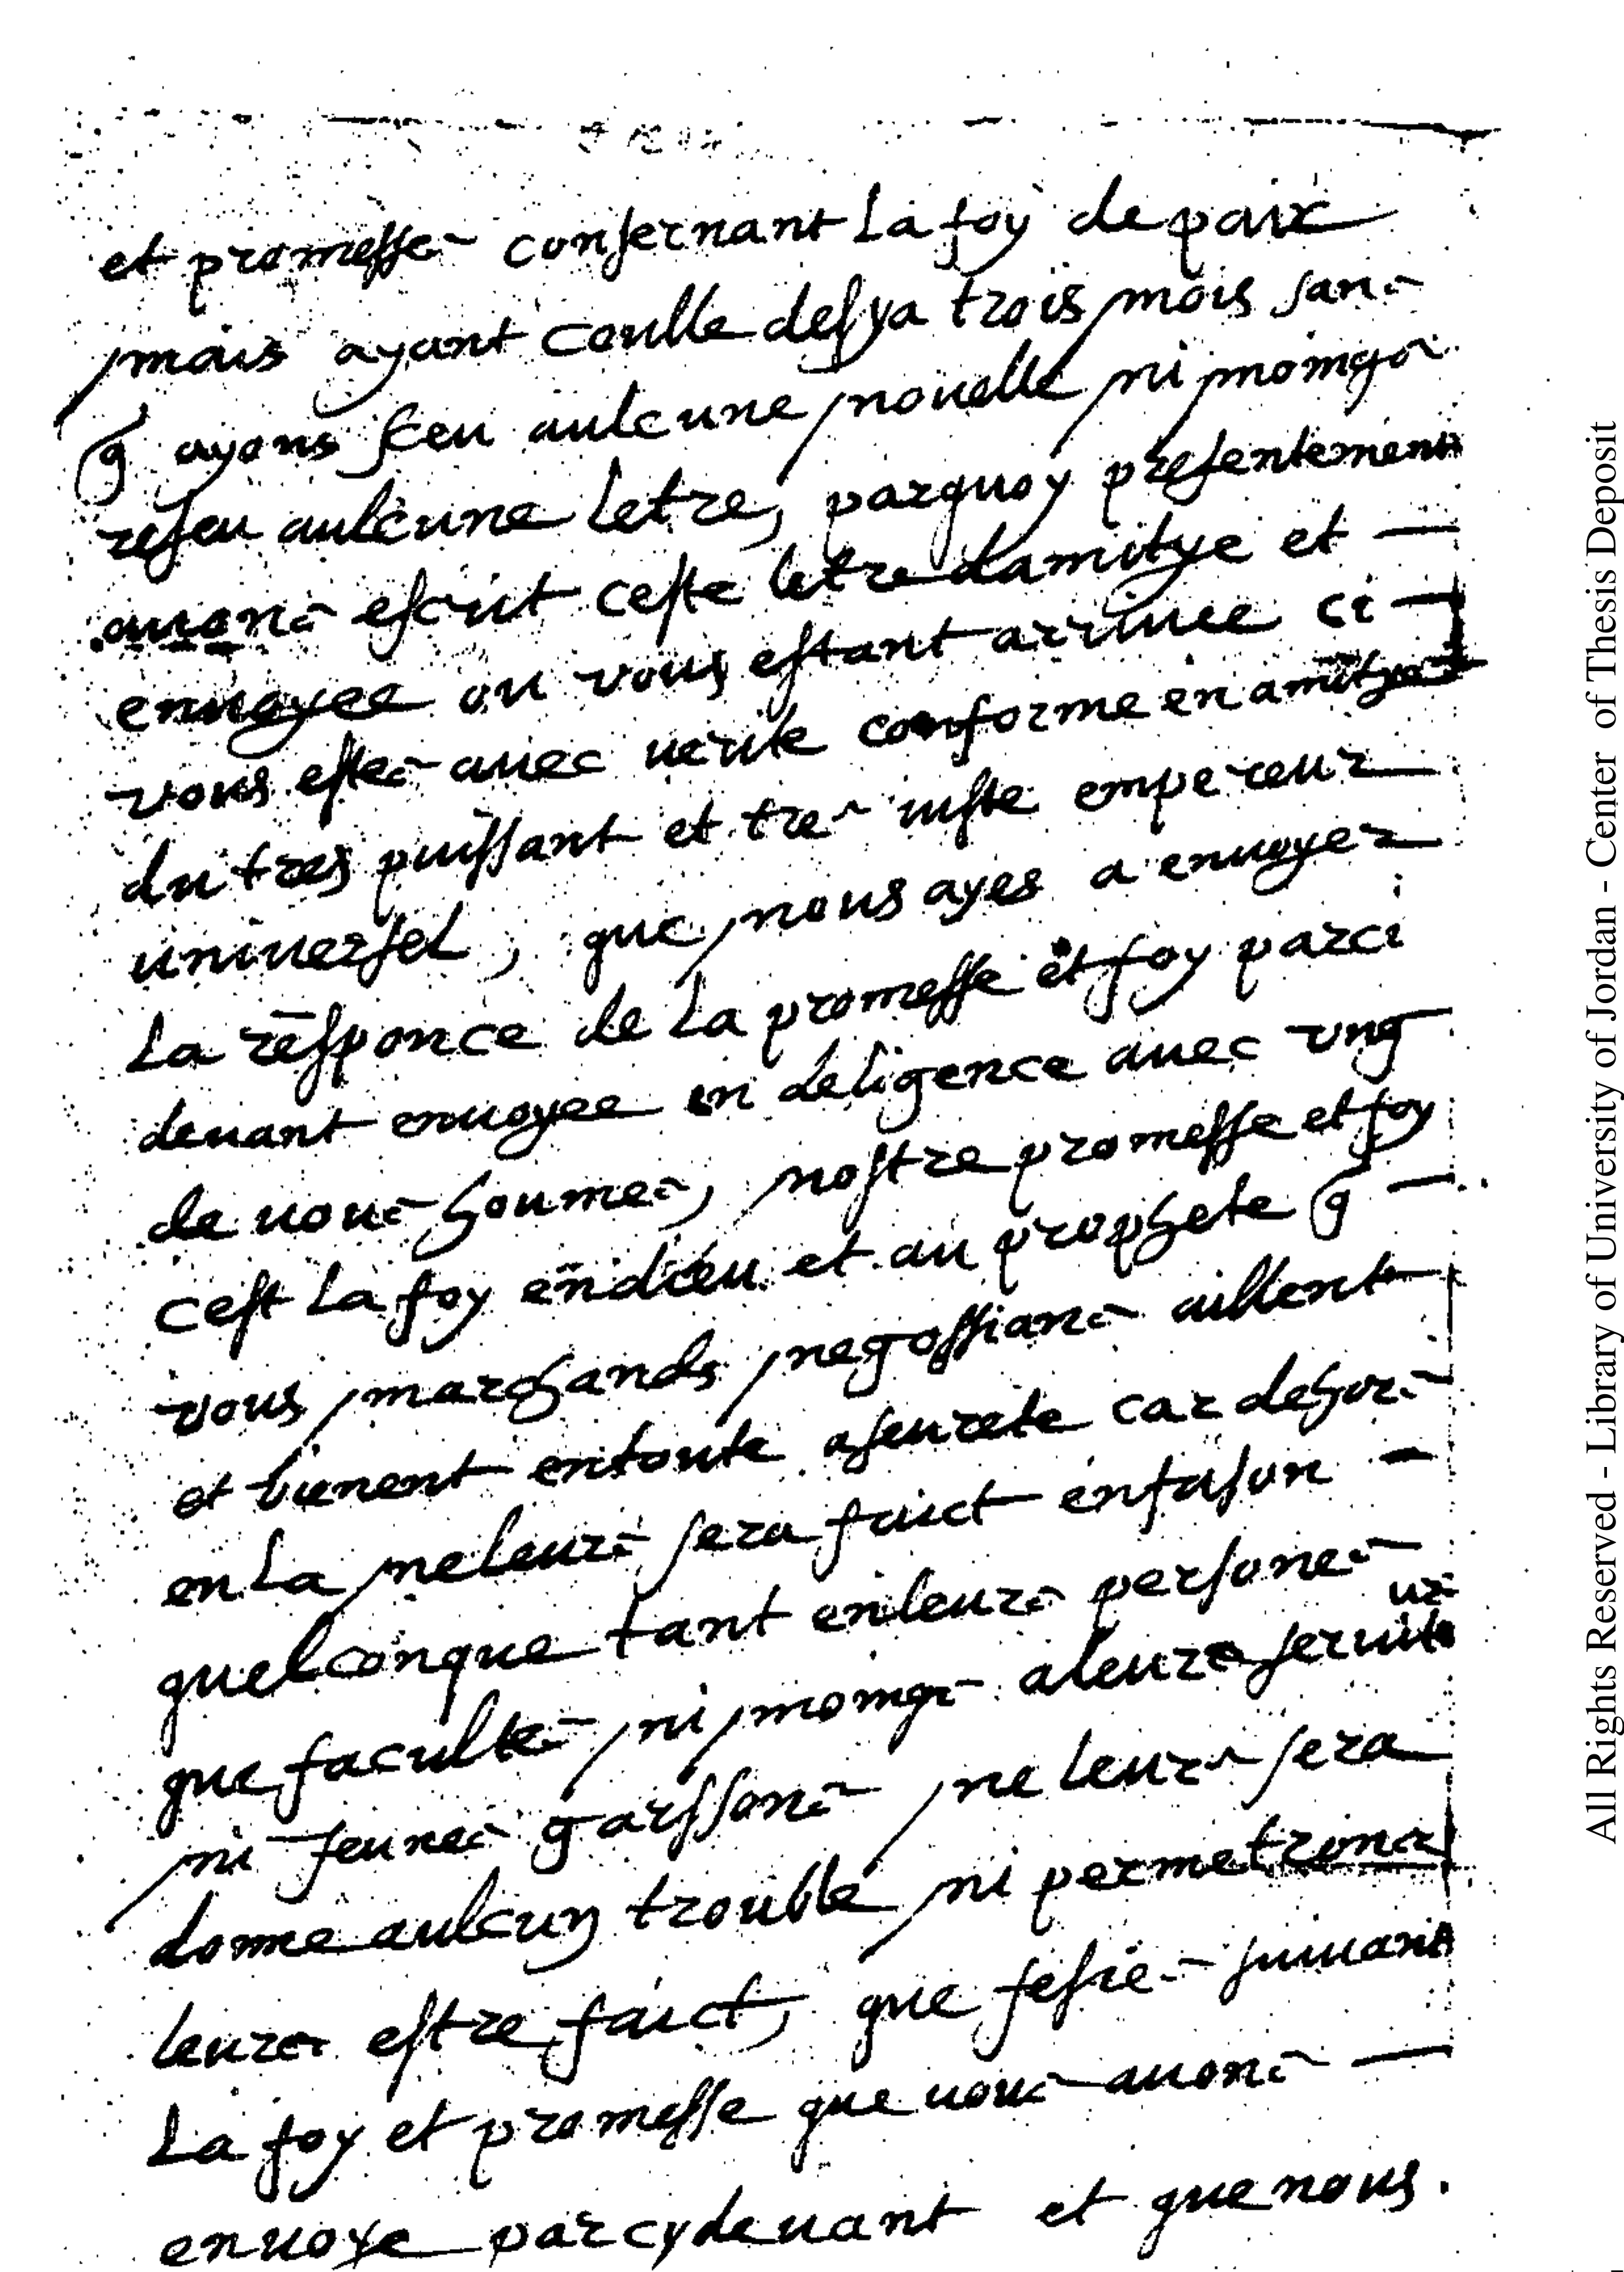 et promesses conservant La foy de paix
mais ayant coulle desya trois mois sans
q ayons sceu aulcune nouelle ni moings
reseu aulcune letre, parquoy presentement
auons escrit ceste letre damitye et —
enuoyee ou vous estant arriuee ci —
vous estes auec verite conforme en amitye
du tres puissant et tres iuste empereur
uniuersel, que nous ayes a enuoyer
La responce de La promesse et foy parci
deuant enuoyee en deligence auec vng
de nous houmes, nostre promesse et foy
cest La foy en dieu et au prophete q —
vous marchands negossians aillent
et vienent entoute aseurete car dehors
en La ne leurs sera faict enfason —
quelconque tant enleurs persones
que facultes ni moings a leurs seruite
urs
ni jeunes garssons ne leurs sera
donne aulcun trouble ni permetrons
leurs estre faict, que sesies suiuant
La foy et promesse que nous auons —
enuoye parcydeuant et que nous.
All Rights Reserved - Library of University of Jordan - Center of Thesis Deposit